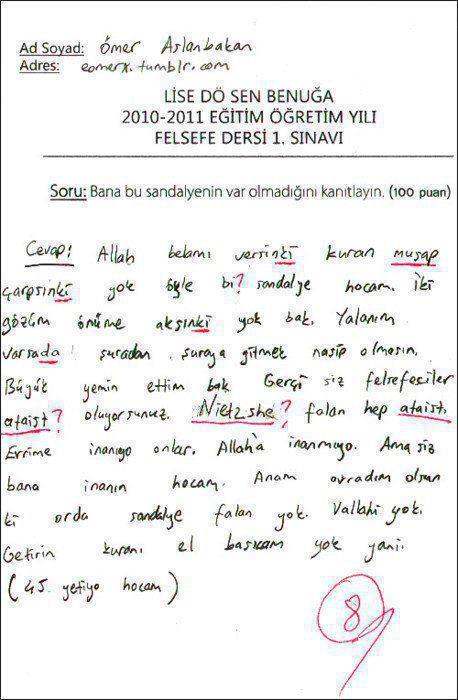 Ad Soyad: Ömer Aslanbakan
Adres: eomerx.tumblr.com
LİSE DÖ SEN BENUĞA
2010-2011 EĞİTİM ÖĞRETİM YILI
FELSEFE DERSİ 1. SINAVI
Soru: Bana bu sandalyenin var olmadığını kanıtlayın. (100 puan)
Cevap: Allah belamı versinki kuran muşap
çarpsınki yok öyle bi? sandalye hocam. İki
gözüm önüme aksınki yok bak. Yalanım
varsada şuradan şuraya gitmek nasip olmasın.
Büyük yemin ettim bak. Gerçi siz felsefesiler
ataist? oluyorsunuz. Nietzshe? falan hep ataist.
Evrime inanıyo onlar. Allah'a inanmıyo. Ama siz
bana inanın hocam. Anam avradım olsun
ki orda sandalye falan yok. Vallahi yok.
Getirin kuranı el basıcam yok yani.
(45 yetiyo hocam)
8